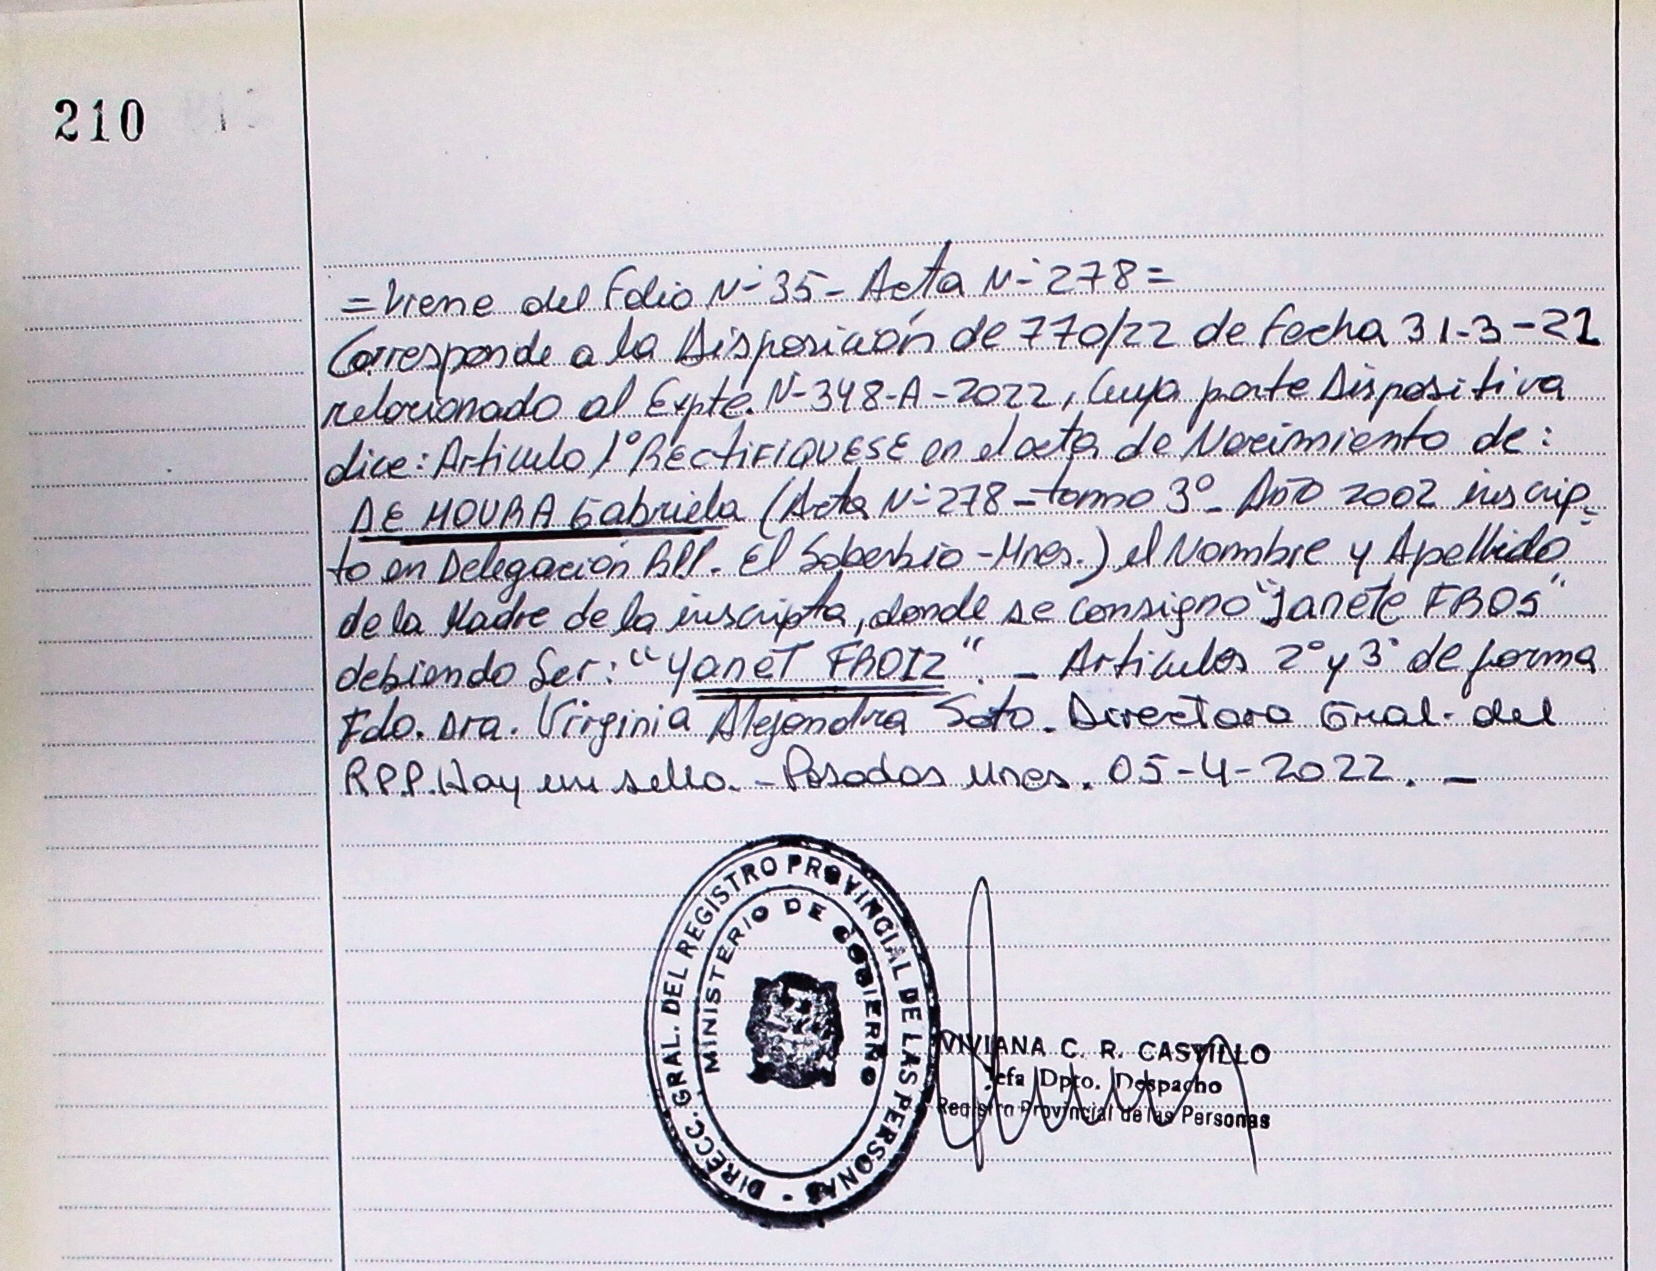 210
=Viene del Folio N- 35 - Acta N- 278=
Corresponde a la Disposición de 770/22 de fecha 31-3-21
relacionado al Expte. N-348-A-2022, Cuya parte Dispositiva
dice: Articulo 1° RECTIFIQUESE en el acta de Nacimiento de:
DE MOURA Gabriela (Acta N-278 - tomo 3° - Año 2002 inscrip-
to en Delegación RPP. El Soberbio - Mnes.) el Nombre y Apellido
de la Madre de la inscripta, donde se consigno "Janete FROS"
debiendo Ser: "Yanet FROIZ". - Articulos 2° y 3° de forma
Fdo. Dra. Virginia Alejandra Soto. Directora Gral. del
R.P.P. Hay un sello. - Posadas Mnes. 05-4-2022. -
DIRECC. GRAL. DEL REGISTRO PROVINCIAL DE LAS PERSONAS -
MINISTERIO DE GOBIERNO
VIVIANA C. R. CASTILLO
Jefa Dpto. Despacho
Registro Provincial de las Personas